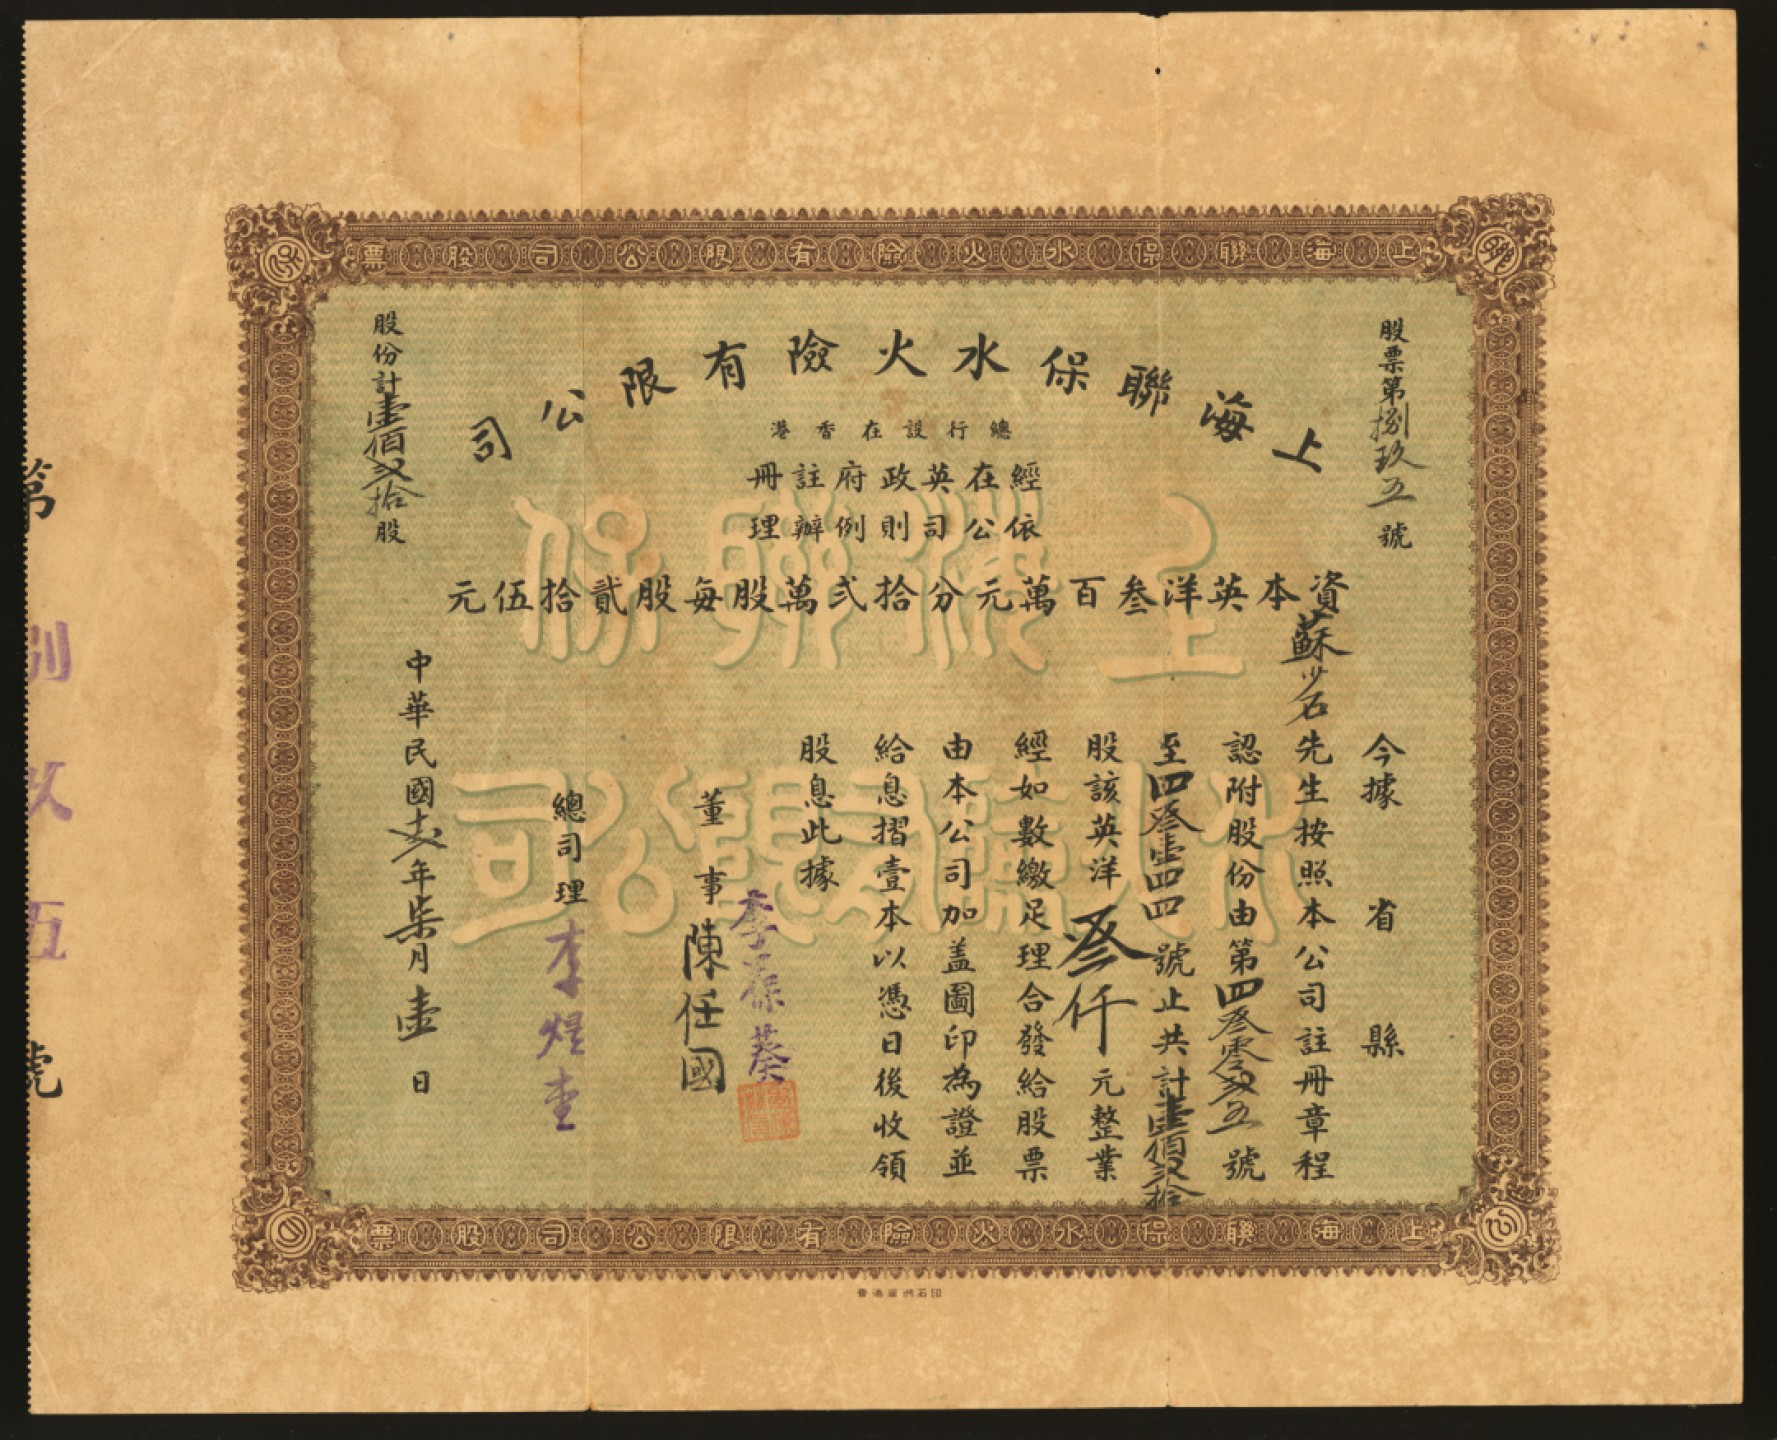 上海聯保水火險有限公司股票
股票第捌玖五號
上海聯保水火險有限公司
總行設在香港
經在英政府註冊
依公司則例辦理
股份計壹佰弍拾股
資本英洋叁百萬元分拾弍萬股每股貳拾伍元
上海聯保
水火險有限公司
今據 省 縣
蘇少石先生按照本公司註冊章程
認附股份由第四叁零弍五號
至四叁壹四四號止共計壹佰弍拾
股該英洋叁仟元整業
經如數繳足理合發給股票
由本公司加盖圖印為證並
給息摺壹本以憑日後收領
股息此據
董事 李葆葵
陳任國
總司理 李煜堂
中華民國年柒月壹日
第捌玖五號
上海聯保水火險有限公司股票